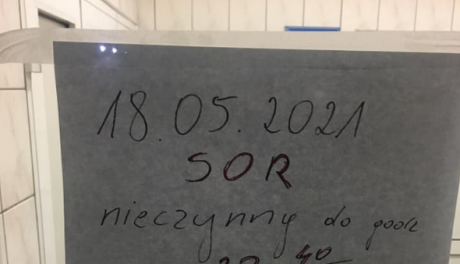 18.05.2021
SOR
nieczynny do godz